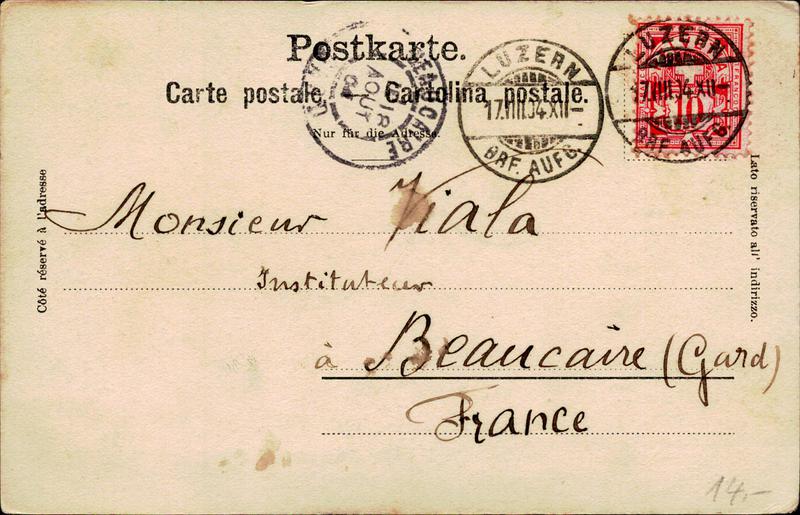 Postkarte.
Carte postale. Cartolina postale.
Nur für die Adresse.
BEAUCAIRE
AOUT
04
LUZERN
17.VIII.04.XII-
BRF. AUFG.
LUZERN
17.VIII.04.XII-
BRF. AUFG.
10
Côté réservé à l'adresse
Lato riservato all' indirizzo.
Monsieur Viala
Instituteur
à Beaucaire (Gard)
France
14.-